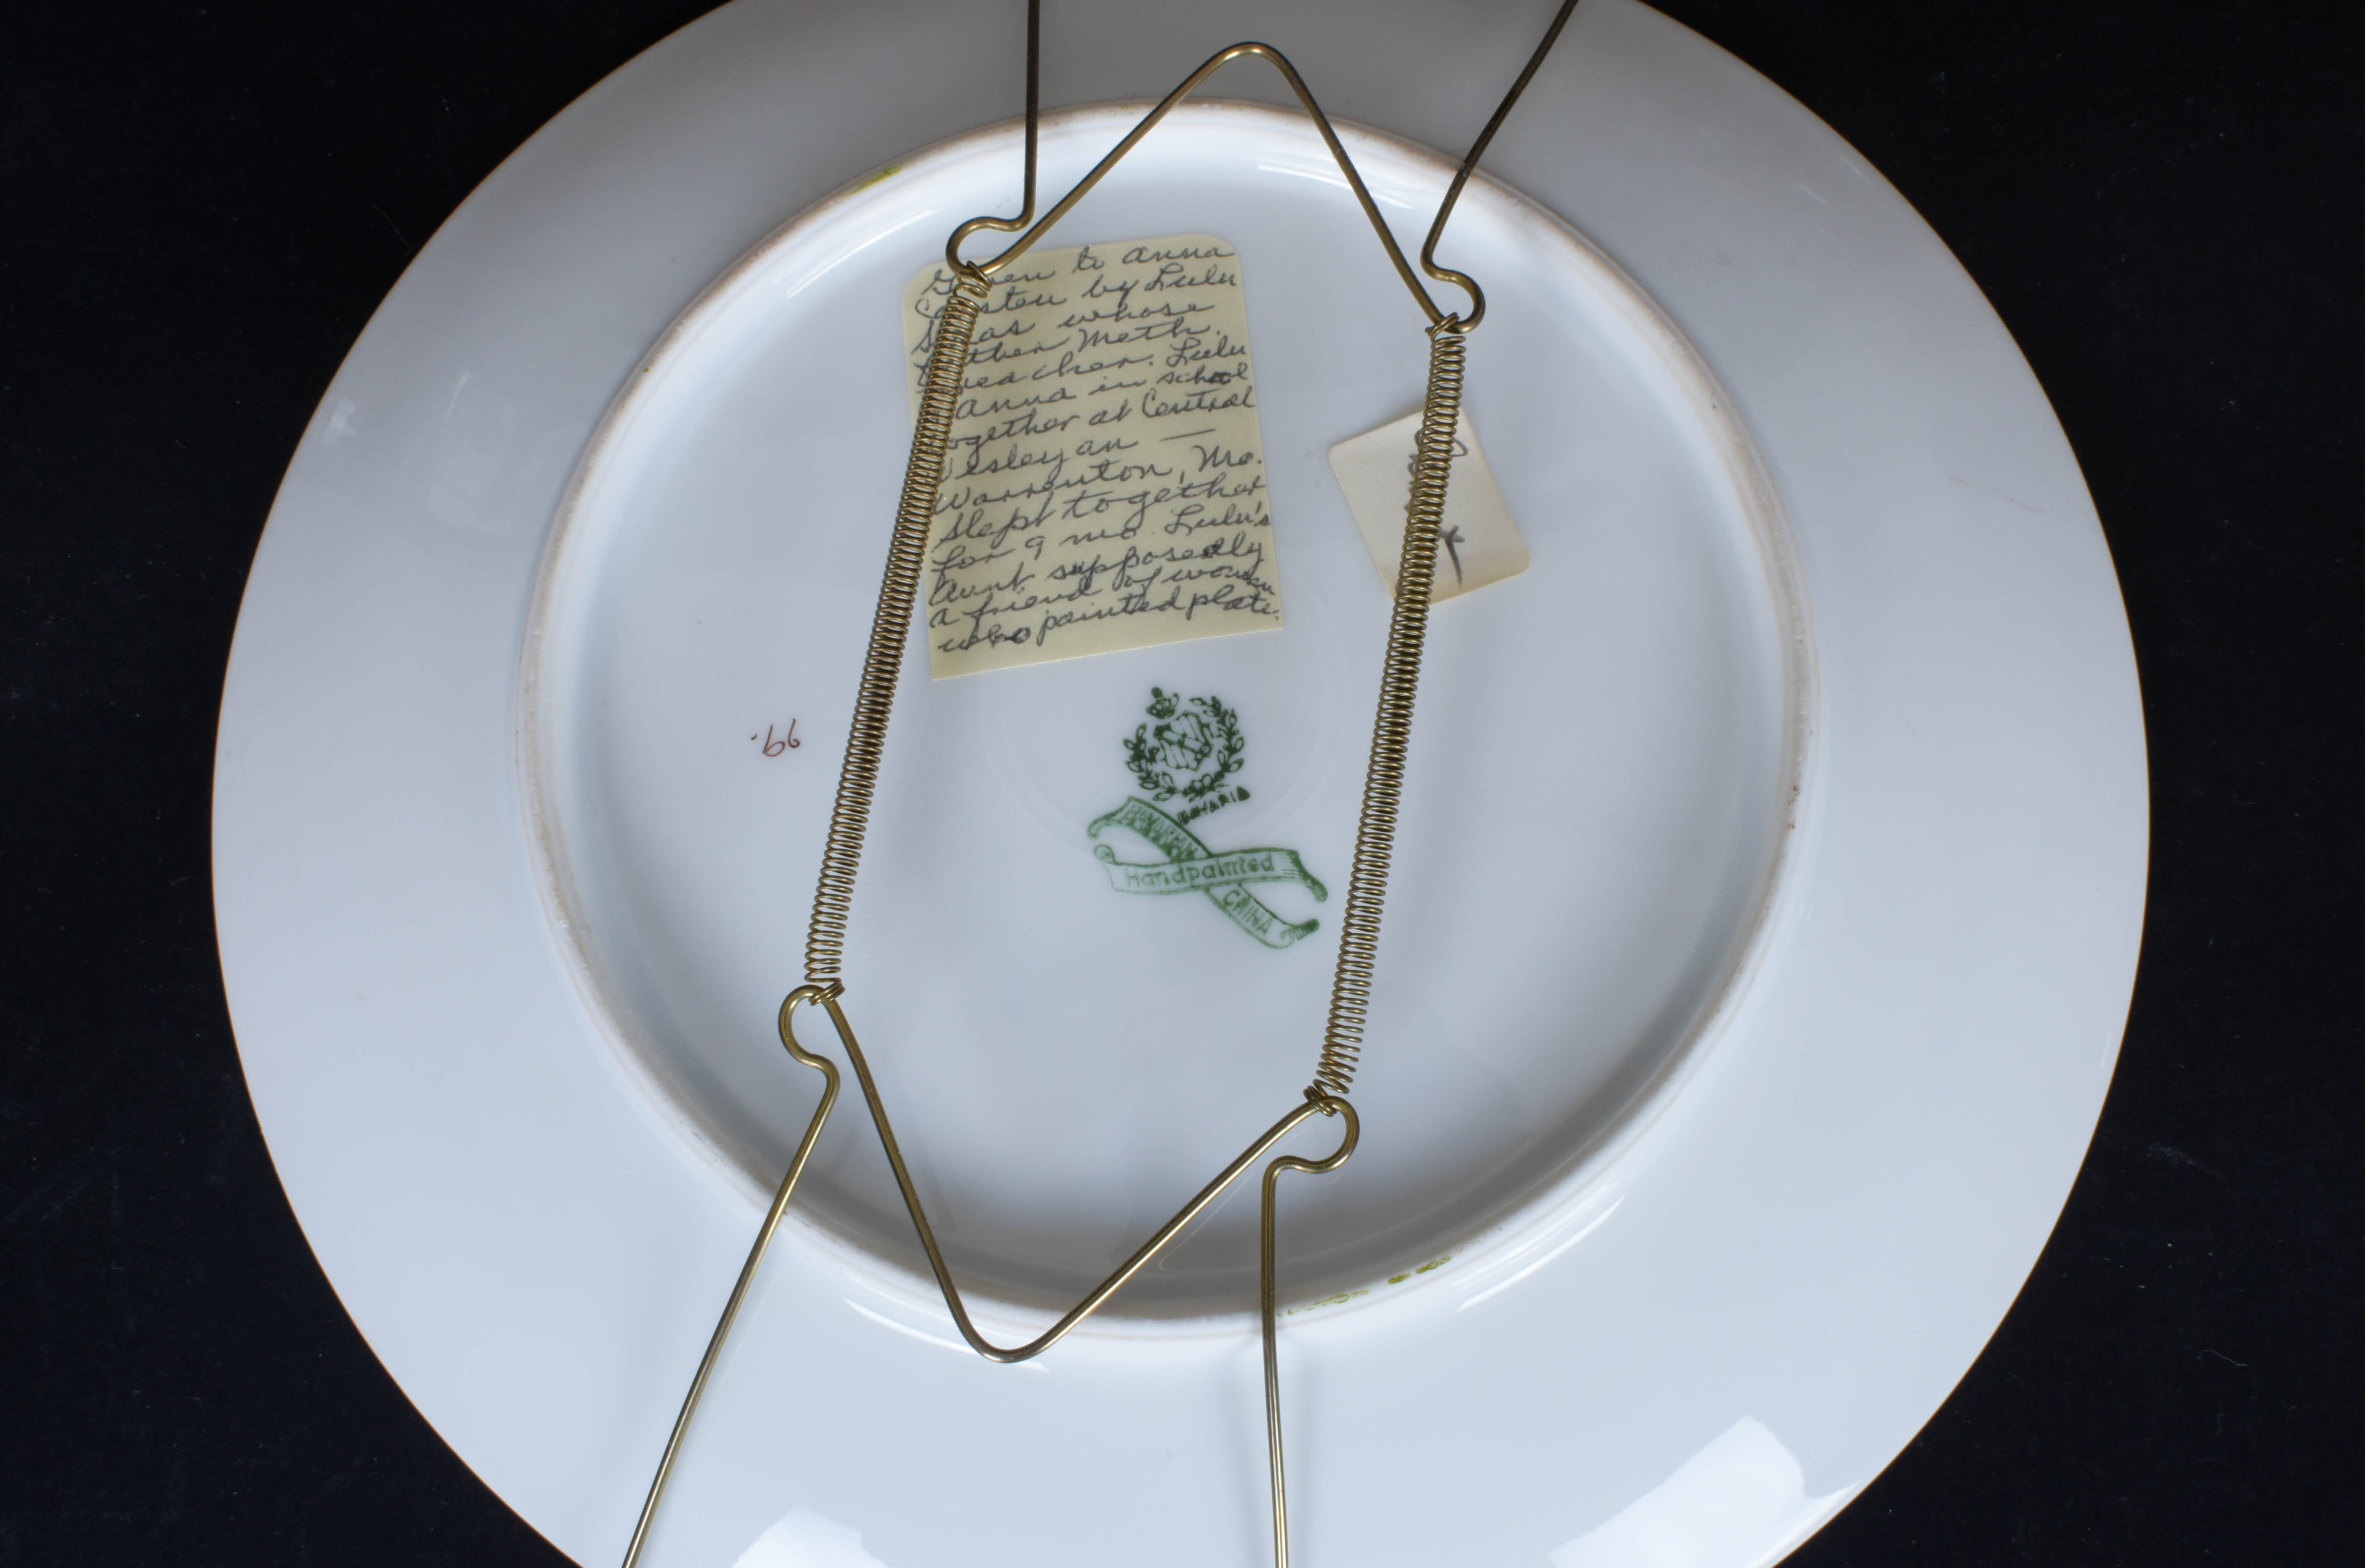 Given to Anna
by Lulu
whose
Meth.
Lulu
Anna in school
together at Central
Wesleyan —
Warrenton, Mo.
slept together
for 9 mo. Lulu's
Aunt supposedly
a friend of woman
who painted plate.
BAVARIA
Handpainted
CHINA